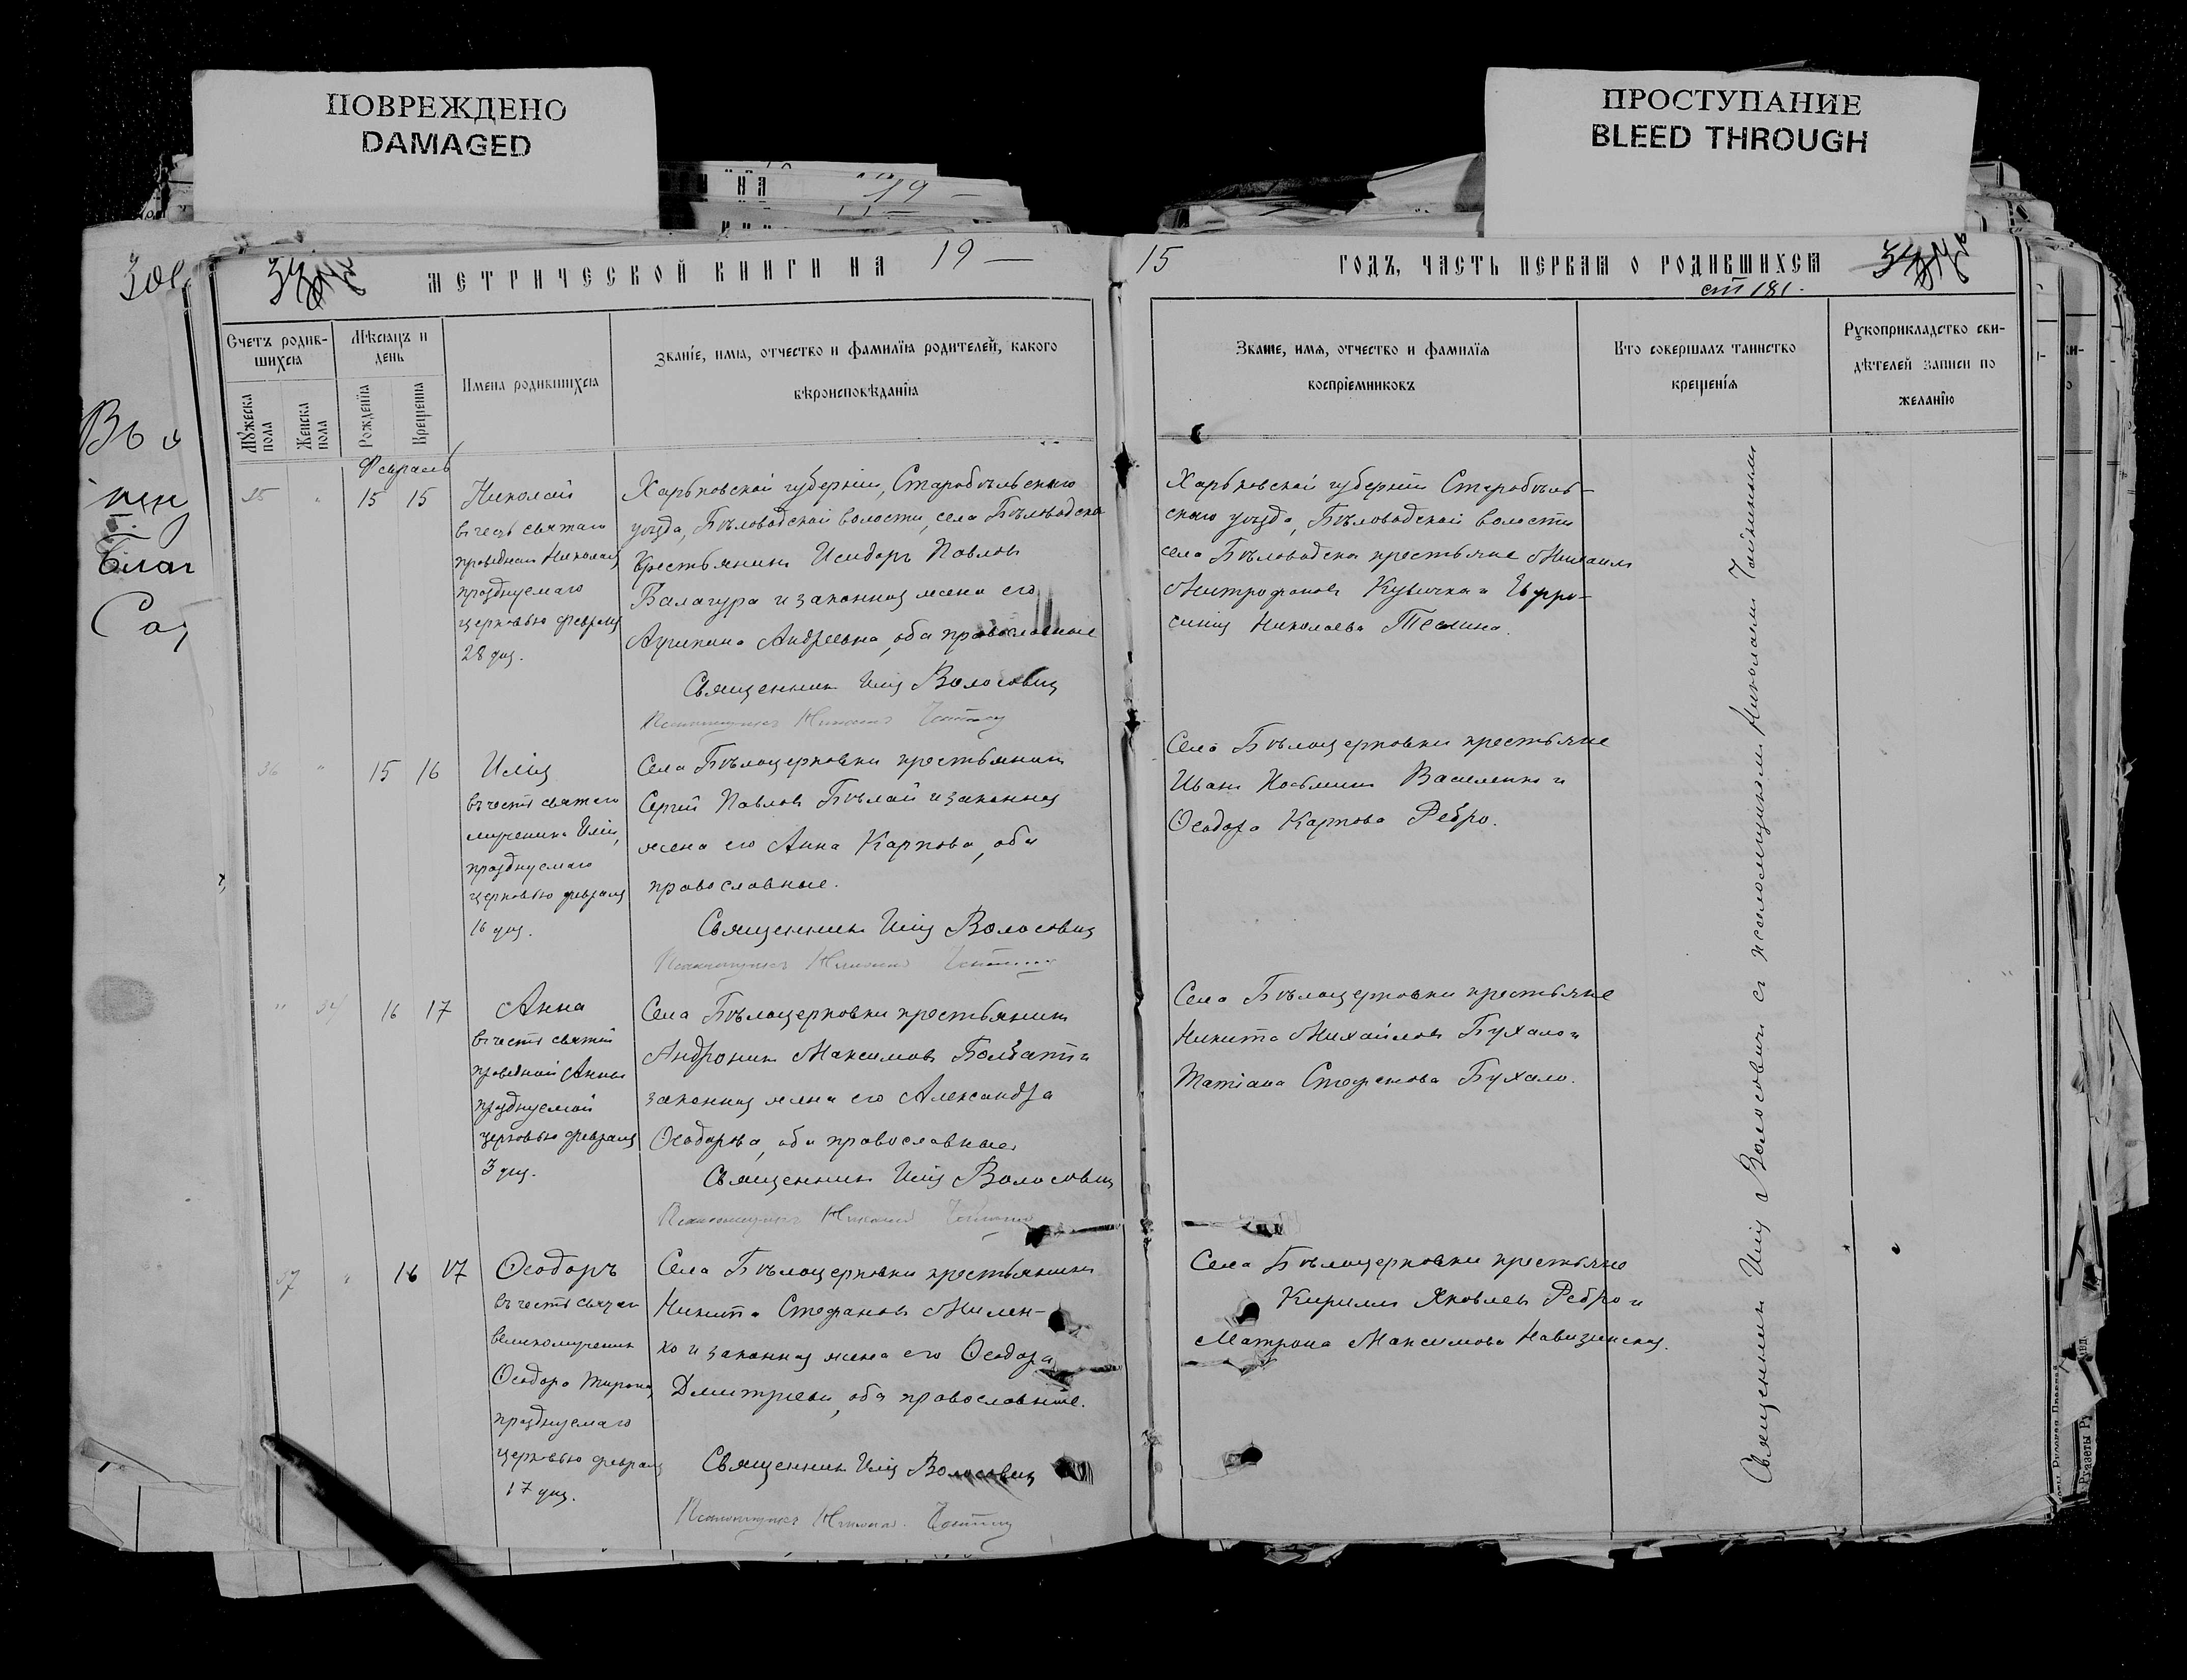 ПОВРЕЖДЕНО
DAMAGED
ПРОСТУПАНИЕ
BLEED THROUGH
МЕТРИЧЕСКОЙ КНИГИ НА 19 —
Счетъ родив-
шихся
Мѣсяцъ и
день
Имена родившихся
Званіе, имя, отчество и фамилія родителей, какого
вѣроисповѣданія
Мужеска
пола
Женска
пола
Рожденія
Крещенія
Февраль
35 " 15 15
Николай
въ честь святаго
праведнаго Николая
празднуемаго
церковью февраля
28 дня.
Харьковской губерніи, Старобѣльскаго
уѣзда, Бѣловодской волости, села Бѣловодска
крестьянинъ Исидоръ Павловъ
Балагура и законная жена его
Андреевна, оба православные
Священникъ Илія Волосовичъ
Псаломщикъ Николай
36 " 15 16
Илія
въ честь святаго
мученика Иліи,
празднуемаго
церковью февраля
16 дня.
Села Бѣлоцерковки крестьянинъ
Сергій Павловъ Бѣлай и законная
жена его Анна Карпова, оба
православные.
Священникъ Илія Волосовичъ
Псаломщикъ Николай
" 34 16 17
Анна
въ честь святой
праведной Анны
празднуемой
церковью февраля
3 дня.
Села Бѣлоцерковки крестьянинъ
Андроникъ Максимовъ и
законная жена его Александра
Ѳеодорова, оба православные
Священникъ Илія Волосовичъ
Псаломщикъ Николай
37 " 16 17
Ѳеодоръ
въ честь святаго
великомученика
Ѳеодора Тирона,
празднуемаго
церковью февраля
17 дня.
Села Бѣлоцерковки крестьянинъ
Никита Стефановъ Милен-
ко и законная жена его Ѳеодора
Дмитріева, оба православные.
Священникъ Илія Волосовичъ
Псаломщикъ Николай
15 ГОДЪ, ЧАСТЬ ПЕРВАЯ О РОДИВШИХСЯ
ст 181.
Званіе, имя, отчество и фамилія
воспріемниковъ
Кто совершалъ таинство
крещенія
Рукоприкладство сви-
дѣтелей записи по
желанію
Харьковской губерніи Старобѣль-
скаго уѣзда, Бѣловодской волости
села Бѣловодска крестьяне Михаилъ
Митрофановъ и Евфро-
синія Николаева
Села Бѣлоцерковки крестьяне
Иванъ Василенко и
Ѳеодора Карпова Ребро.
Села Бѣлоцерковки крестьяне
Никита Михайловъ Бухало и
Татіана Стефанова Бухало.
Села Бѣлоцерковки крестьяне
Кириллъ Яковлевъ Ребро и
Матрона Максимова
Священникъ Илія Волосовичъ съ псаломщикомъ Николаемъ